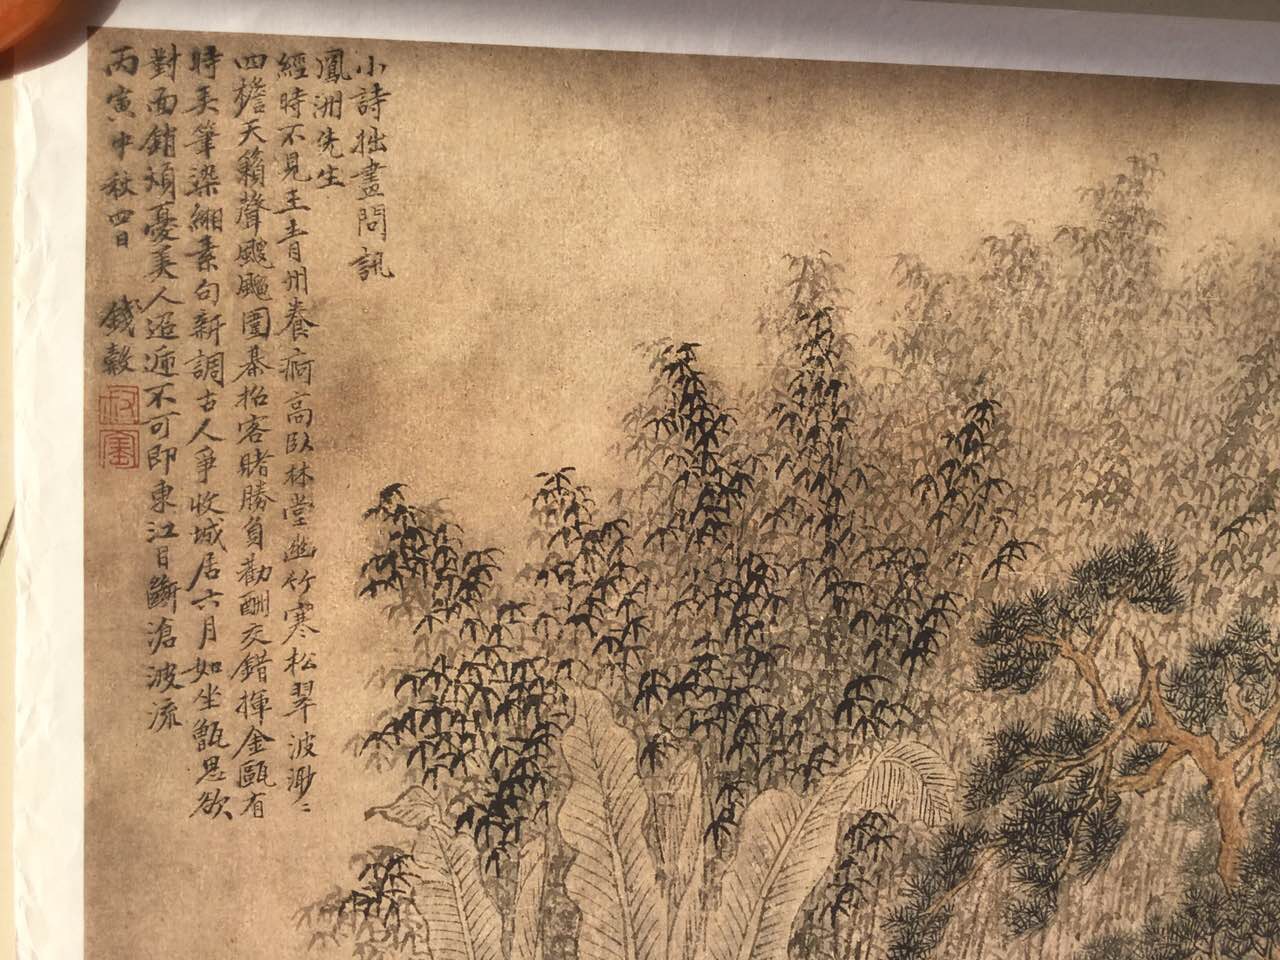 小詩拙畫問訊
鳳洲先生
經時不見王青州養疴高臥林堂幽竹寒松翠波渺〻
四檐天籟聲颼飀圍棊招客賭勝負勸酬交錯揮金甌有
時弄筆染緗素句新調古人爭收城居六月如坐甑思欲
對面銷煩憂美人迢逓不可即東江目斷滄波流
丙寅中秋四日 錢榖
叔寶